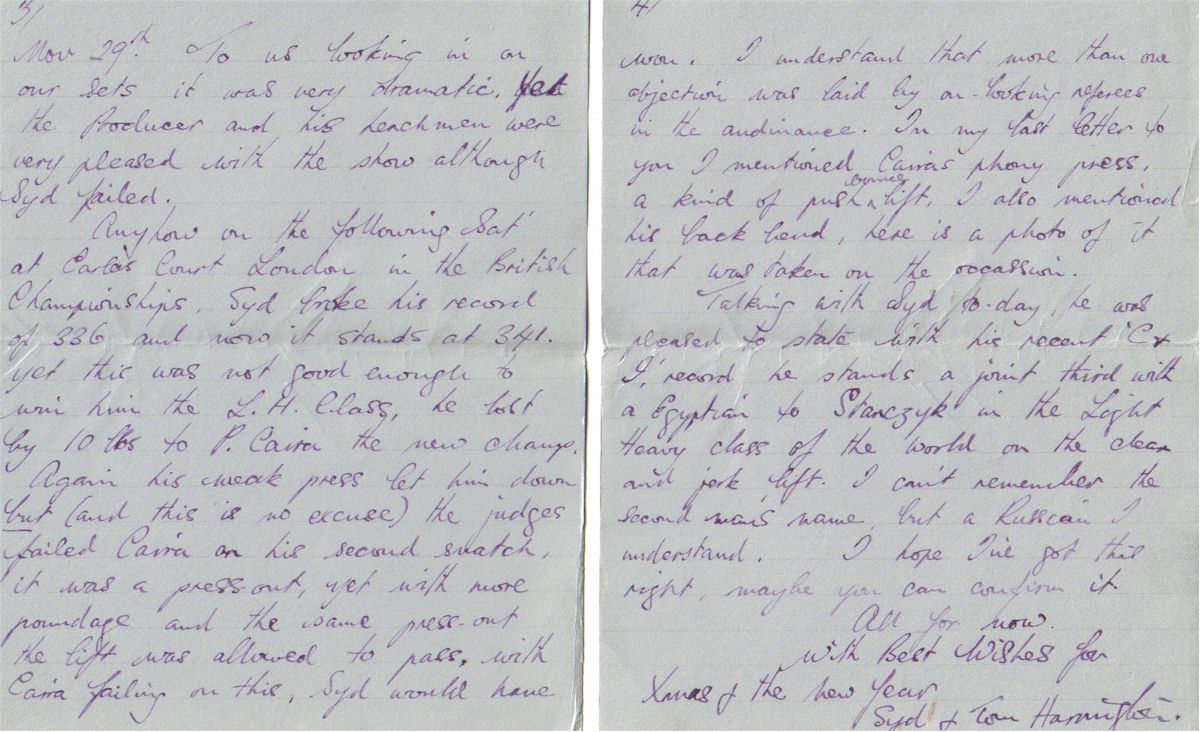 3/
Nov 29th. To us looking in on
our sets it was very dramatic. Yet
the Producer and his henchmen were
very pleased with the show although
Syd failed.
Anyhow on the following Sat
at Earls Court London in the British
Championships, Syd broke his record
of 336 and now it stands at 341.
yet this was not good enough to
win him the L.H. Class, he lost
by 10 lbs to P. Caira the new champ.
Again his weak press let him down
but (and this is no excuse) the judges
failed Caira on his second snatch,
it was a press-out, yet with more
poundage and the same press-out
the lift was allowed to pass, with
Caira failing on this, Syd would have
4/
won. I understand that more than one
objection was laid by on-looking referees
in the audinance. In my last letter to
you I mentioned Cairas phony press,
a kind of push bounce lift, I also mentioned
his back bend, here is a photo of it
that was taken on the occassion.
Talking with Syd to-day, he was
pleased to state with his recent "C &
J," record he stands a joint third with
a Egyptian to Stanczyk in the Light
Heavy class of the world on the clean
and jerk lift. I can't remember the
second mans name, but a Russian I
understand. I hope I've got this
right, maybe you can confirm it.
All for now.
With Best Wishes for
Xmas & the New Year
Syd & Tom Harrington.